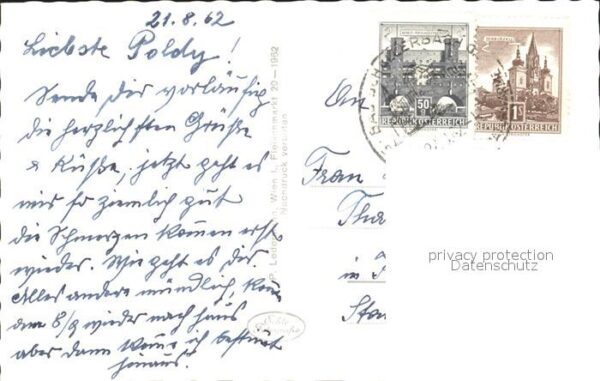 21.8.62
Liebste Poldy!
Sende dir vorläufig
die herzlichsten Grüße
& Küße, jetzt geht es
mir so ziemlich gut
die Schmerzen kommen erst
wieder. Wie geht es dir
Alles andere mündlich, komme
am 8/9 wieder nach haus
aber dann komme ich bestimmt
hinaus.
P. Wien I., Fleischmarkt 20 — 1962
Nachdruck verboten
An
Frau
in
50
REPUBLIK ÖSTERREICH
1S
REPUBLIK ÖSTERREICH
privacy protection
Datenschutz